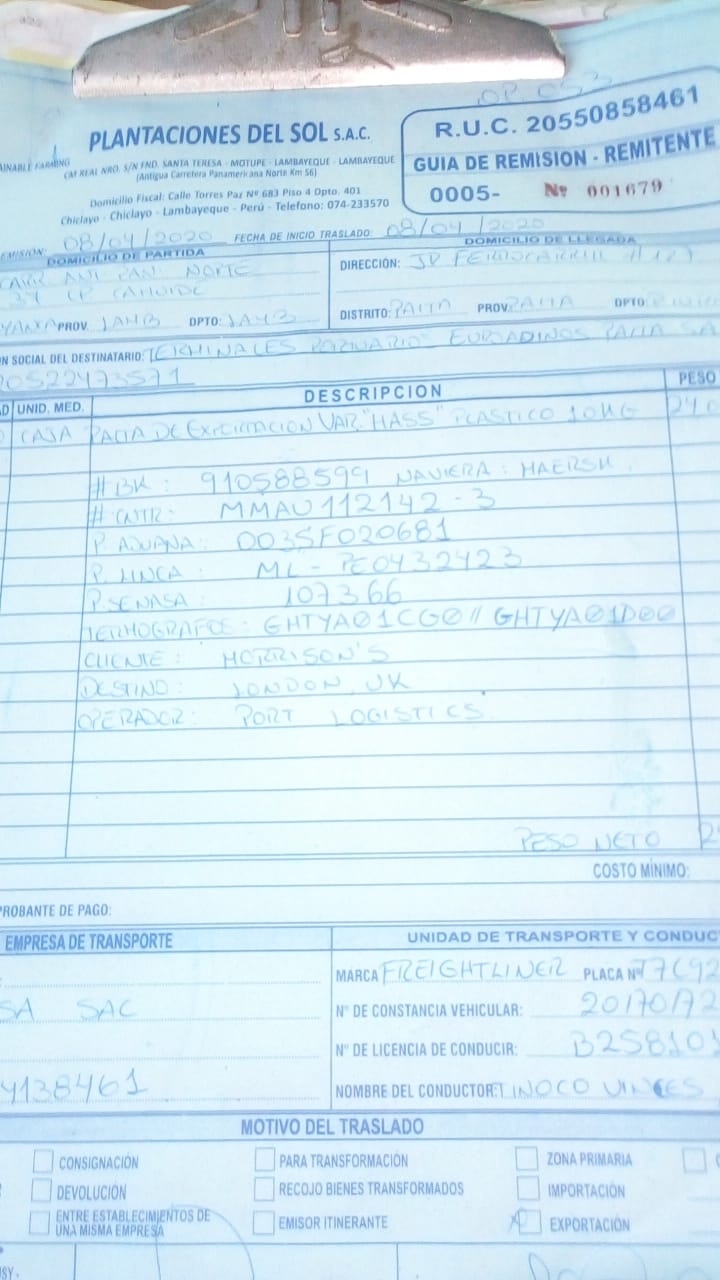 OP. 053
PLANTACIONES DEL SOL S.A.C.
R.U.C. 20550858461
AINABLE FARMING
CAR REAL NRO. S/N FND. SANTA TERESA - MOTUPE - LAMBAYEQUE - LAMBAYEQUE
(Antigua Carretera Panamericana Norte Km 56)
GUIA DE REMISION - REMITENTE
Domicilio Fiscal: Calle Torres Paz Nº 683 Piso 4 Dpto. 401
Chiclayo - Chiclayo - Lambayeque - Perú - Telefono: 074-233570
0005- Nº 001679
EMISIÓN: 08/04/2020 FECHA DE INICIO TRASLADO: 08/04/2020
DOMICILIO DE PARTIDA DOMICILIO DE LLEGADA
PAN. NORTE DIRECCIÓN: JR FERROCARRIL # 127
37 CP CAHUIDE
PROV. LAMB DPTO: LAMB DISTRITO: PAITA PROV: PAITA DPTO:
N SOCIAL DEL DESTINATARIO: TERMINALES PORTUARIOS EUROANDINOS PAITA SA
20522473571
AD UNID. MED. DESCRIPCION PESO
CAJA PALTA DE EXPORTACION VAR. "HASS" PLASTICO 10KG 240
# BK : 910588599 NAVIERA : MAERSK
# CNTR : MMAU 112142 - 3
P. ADUANA : 003SF020681
P. LINEA : ML - PE0432423
P. SENASA : 107366
TERMOGRAFOS : GHTYA01CG0 // GHTYA01D00
CLIENTE : MORRISON'S
DESTINO : LONDON, UK
OPERADOR : PORT LOGISTICS
PESO NETO 2
COSTO MÍNIMO:
PROBANTE DE PAGO:
EMPRESA DE TRANSPORTE UNIDAD DE TRANSPORTE Y CONDUC
MARCA FREIGHTLINER PLACA Nº T7C92
SA SAC Nº DE CONSTANCIA VEHICULAR: 20170172
Nº DE LICENCIA DE CONDUCIR: B258101
4138461 NOMBRE DEL CONDUCTOR: TINOCO VINCES
MOTIVO DEL TRASLADO
CONSIGNACIÓN PARA TRANSFORMACIÓN ZONA PRIMARIA
DEVOLUCIÓN RECOJO BIENES TRANSFORMADOS IMPORTACIÓN
ENTRE ESTABLECIMIENTOS DE UNA MISMA EMPRESA EMISOR ITINERANTE X EXPORTACIÓN